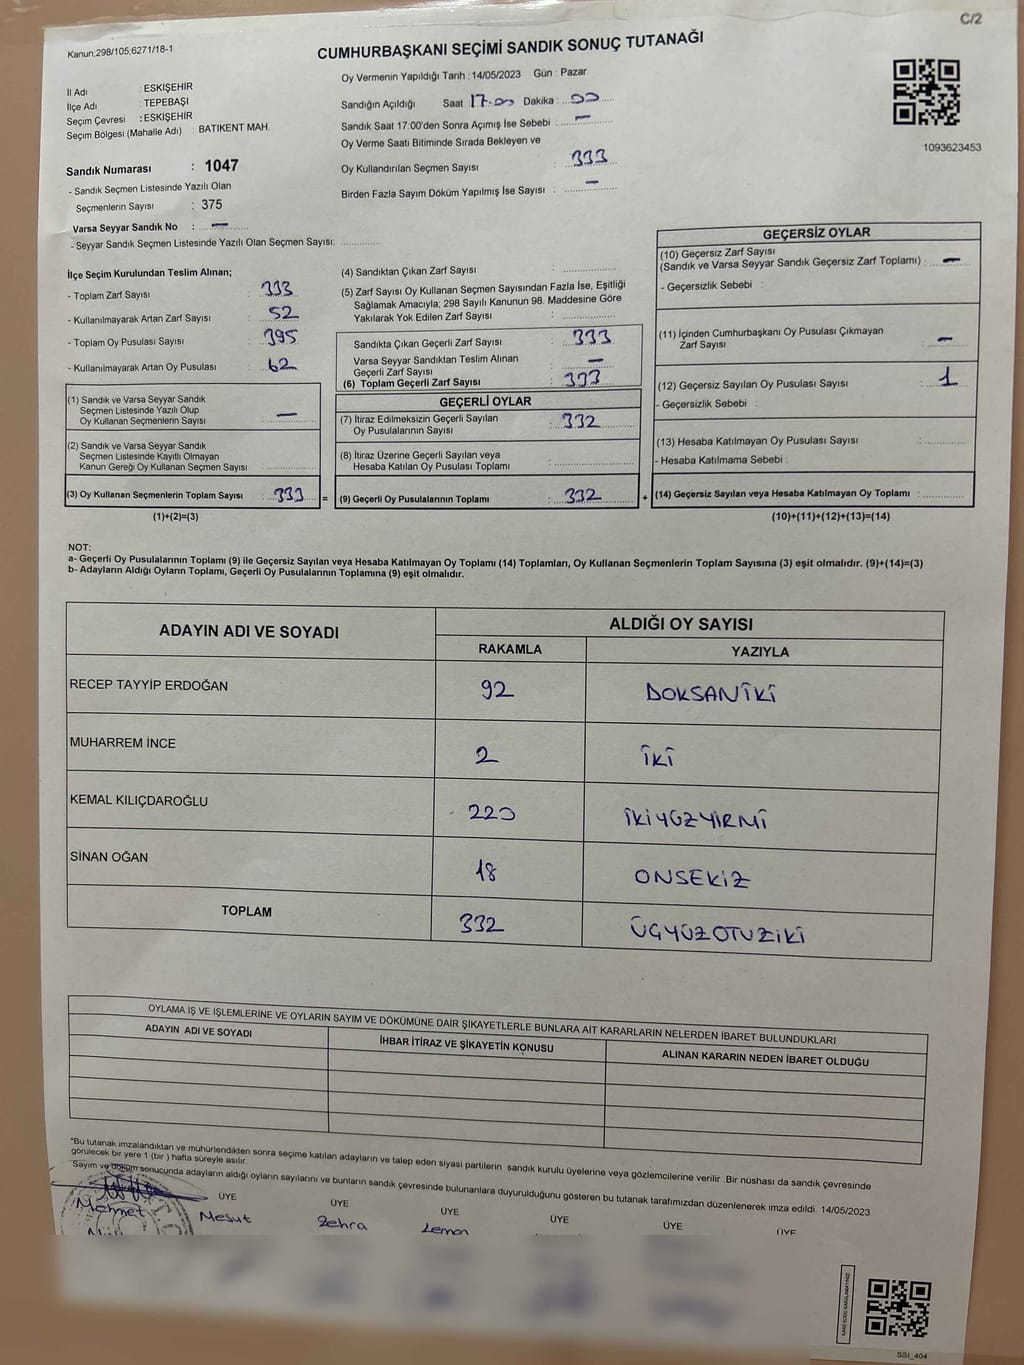 C/2
Kanun;298/105,6271/18-1
CUMHURBAŞKANI SEÇİMİ SANDIK SONUÇ TUTANAĞI
İl Adı : ESKİŞEHİR
İlçe Adı : TEPEBAŞI
Seçim Çevresi : ESKİŞEHİR
Seçim Bölgesi (Mahalle Adı) : BATIKENT MAH.
Oy Vermenin Yapıldığı Tarih : 14/05/2023 Gün : Pazar
Sandığın Açıldığı Saat 17.00 Dakika : 00
Sandık Saat 17:00'den Sonra Açımış İse Sebebi : —
Oy Verme Saati Bitiminde Sırada Bekleyen ve
Oy Kullandırılan Seçmen Sayısı : 333
Birden Fazla Sayım Döküm Yapılmış İse Sayısı : —
1093623453
Sandık Numarası : 1047
- Sandık Seçmen Listesinde Yazılı Olan
Seçmenlerin Sayısı : 375
Varsa Seyyar Sandık No : —
- Seyyar Sandık Seçmen Listesinde Yazılı Olan Seçmen Sayısı:
İlçe Seçim Kurulundan Teslim Alınan;
- Toplam Zarf Sayısı : 333
- Kullanılmayarak Artan Zarf Sayısı : 52
- Toplam Oy Pusulası Sayısı : 395
- Kullanılmayarak Artan Oy Pusulası : 62
(1) Sandık ve Varsa Seyyar Sandık
Seçmen Listesinde Yazılı Olup
Oy Kullanan Seçmenlerin Sayısı : —
(2) Sandık ve Varsa Seyyar Sandık
Seçmen Listesinde Kayıtlı Olmayan
Kanun Gereği Oy Kullanan Seçmen Sayısı :
(3) Oy Kullanan Seçmenlerin Toplam Sayısı : 333 =
(1)+(2)=(3)
(4) Sandıktan Çıkan Zarf Sayısı :
(5) Zarf Sayısı Oy Kullanan Seçmen Sayısından Fazla İse, Eşitliği
Sağlamak Amacıyla; 298 Sayılı Kanunun 98. Maddesine Göre
Yakılarak Yok Edilen Zarf Sayısı :
Sandıkta Çıkan Geçerli Zarf Sayısı : 333
Varsa Seyyar Sandıktan Teslim Alınan
Geçerli Zarf Sayısı : —
(6) Toplam Geçerli Zarf Sayısı : 333
GEÇERLİ OYLAR
(7) İtiraz Edilmeksizin Geçerli Sayılan
Oy Pusulalarının Sayısı : 332
(8) İtiraz Üzerine Geçerli Sayılan veya
Hesaba Katılan Oy Pusulası Toplamı :
(9) Geçerli Oy Pusulalarının Toplamı : 332 +
GEÇERSİZ OYLAR
(10) Geçersiz Zarf Sayısı
(Sandık ve Varsa Seyyar Sandık Geçersiz Zarf Toplamı) : —
- Geçersizlik Sebebi :
(11) İçinden Cumhurbaşkanı Oy Pusulası Çıkmayan
Zarf Sayısı : —
(12) Geçersiz Sayılan Oy Pusulası Sayısı : 1
- Geçersizlik Sebebi :
(13) Hesaba Katılmayan Oy Pusulası Sayısı :
- Hesaba Katılmama Sebebi :
(14) Geçersiz Sayılan veya Hesaba Katılmayan Oy Toplamı :
(10)+(11)+(12)+(13)=(14)
NOT:
a- Geçerli Oy Pusulalarının Toplamı (9) ile Geçersiz Sayılan veya Hesaba Katılmayan Oy Toplamı (14) Toplamları, Oy Kullanan Seçmenlerin Toplam Sayısına (3) eşit olmalıdır. (9)+(14)=(3)
b- Adayların Aldığı Oyların Toplamı, Geçerli Oy Pusulalarının Toplamına (9) eşit olmalıdır.
ADAYIN ADI VE SOYADI
ALDIĞI OY SAYISI
RAKAMLA YAZIYLA
RECEP TAYYİP ERDOĞAN 92 DOKSANİKİ
MUHARREM İNCE 2 İKİ
KEMAL KILIÇDAROĞLU 220 İKİYÜZYİRMİ
SİNAN OĞAN 18 ONSEKİZ
TOPLAM 332 ÜÇYÜZOTUZİKİ
OYLAMA İŞ VE İŞLEMLERİNE VE OYLARIN SAYIM VE DÖKÜMÜNE DAİR ŞİKAYETLERLE BUNLARA AİT KARARLARIN NELERDEN İBARET BULUNDUKLARI
ADAYIN ADI VE SOYADI İHBAR İTİRAZ VE ŞİKAYETİN KONUSU ALINAN KARARIN NEDEN İBARET OLDUĞU
"Bu tutanak imzalandıktan ve mühürlendikten sonra seçime katılan adayların ve talep eden siyasi partilerin sandık kurulu üyelerine veya gözlemcilerine verilir. Bir nüshası da sandık çevresinde
görülecek bir yere 1 (bir) hafta süreyle asılır.
Sayım ve döküm sonucunda adayların aldığı oyların sayılarını ve bunların sandık çevresinde bulunanlara duyurulduğunu gösteren bu tutanak tarafımızdan düzenlenerek imza edildi. 14/05/2023
ÜYE ÜYE ÜYE ÜYE ÜYE ÜYE
Mehmet Mesut Zehra Lemon
SSI_404